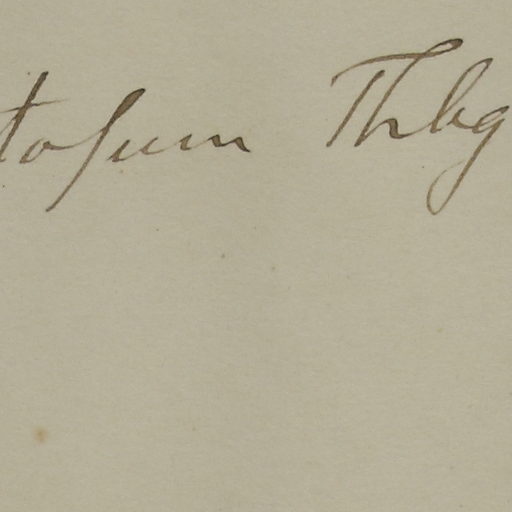 tosum Thbg